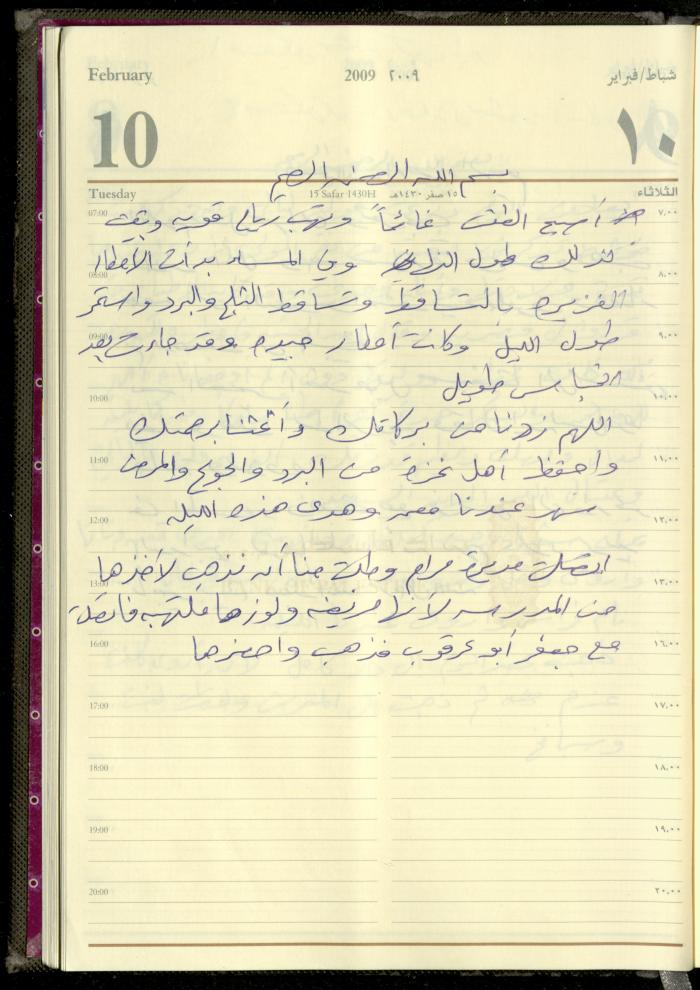 February 2009 ٢٠٠٩ شباط/فبراير
10 ١٠
بسم الله الرحمن الرحيم
Tuesday 15 Safar 1430H ١٥ صفر ١٤٣٠هـ الثلاثاء
07:00 أصبح الطقس غائماً وتهب رياح قويه وبقيت ٧،٠٠
كذلك طول النهار وفي المساء بدأت الأمطار
08:00 ٨،٠٠
الغزيره بالتساقط وتساقط الثلج والبرد واستمر
09:00 طول الليل وكانت أمطار جيده وقد جاءت بعد ٩،٠٠
انحباس طويل
10:00 ١٠،٠٠
اللهم زدنا من بركاتك وأغثنا برحمتك
11:00 واحفظ أهل غزة من البرد والجوع والمرض ١١،٠٠
سهر عندنا معمر وهدى هذه الليله
12:00 ١٢،٠٠
اتصلت مديرة مرام وطلبت منا أن نذهب لأخذها
13:00 ١٣،٠٠
من المدرسه لأنها مريضه ولوزها ملتهبه فاتصلت
16:00 مع جعفر أبو عرقوب فذهب واحضرها ١٦،٠٠
17:00 ١٧،٠٠
18:00 ١٨،٠٠
19:00 ١٩،٠٠
20:00 ٢٠،٠٠